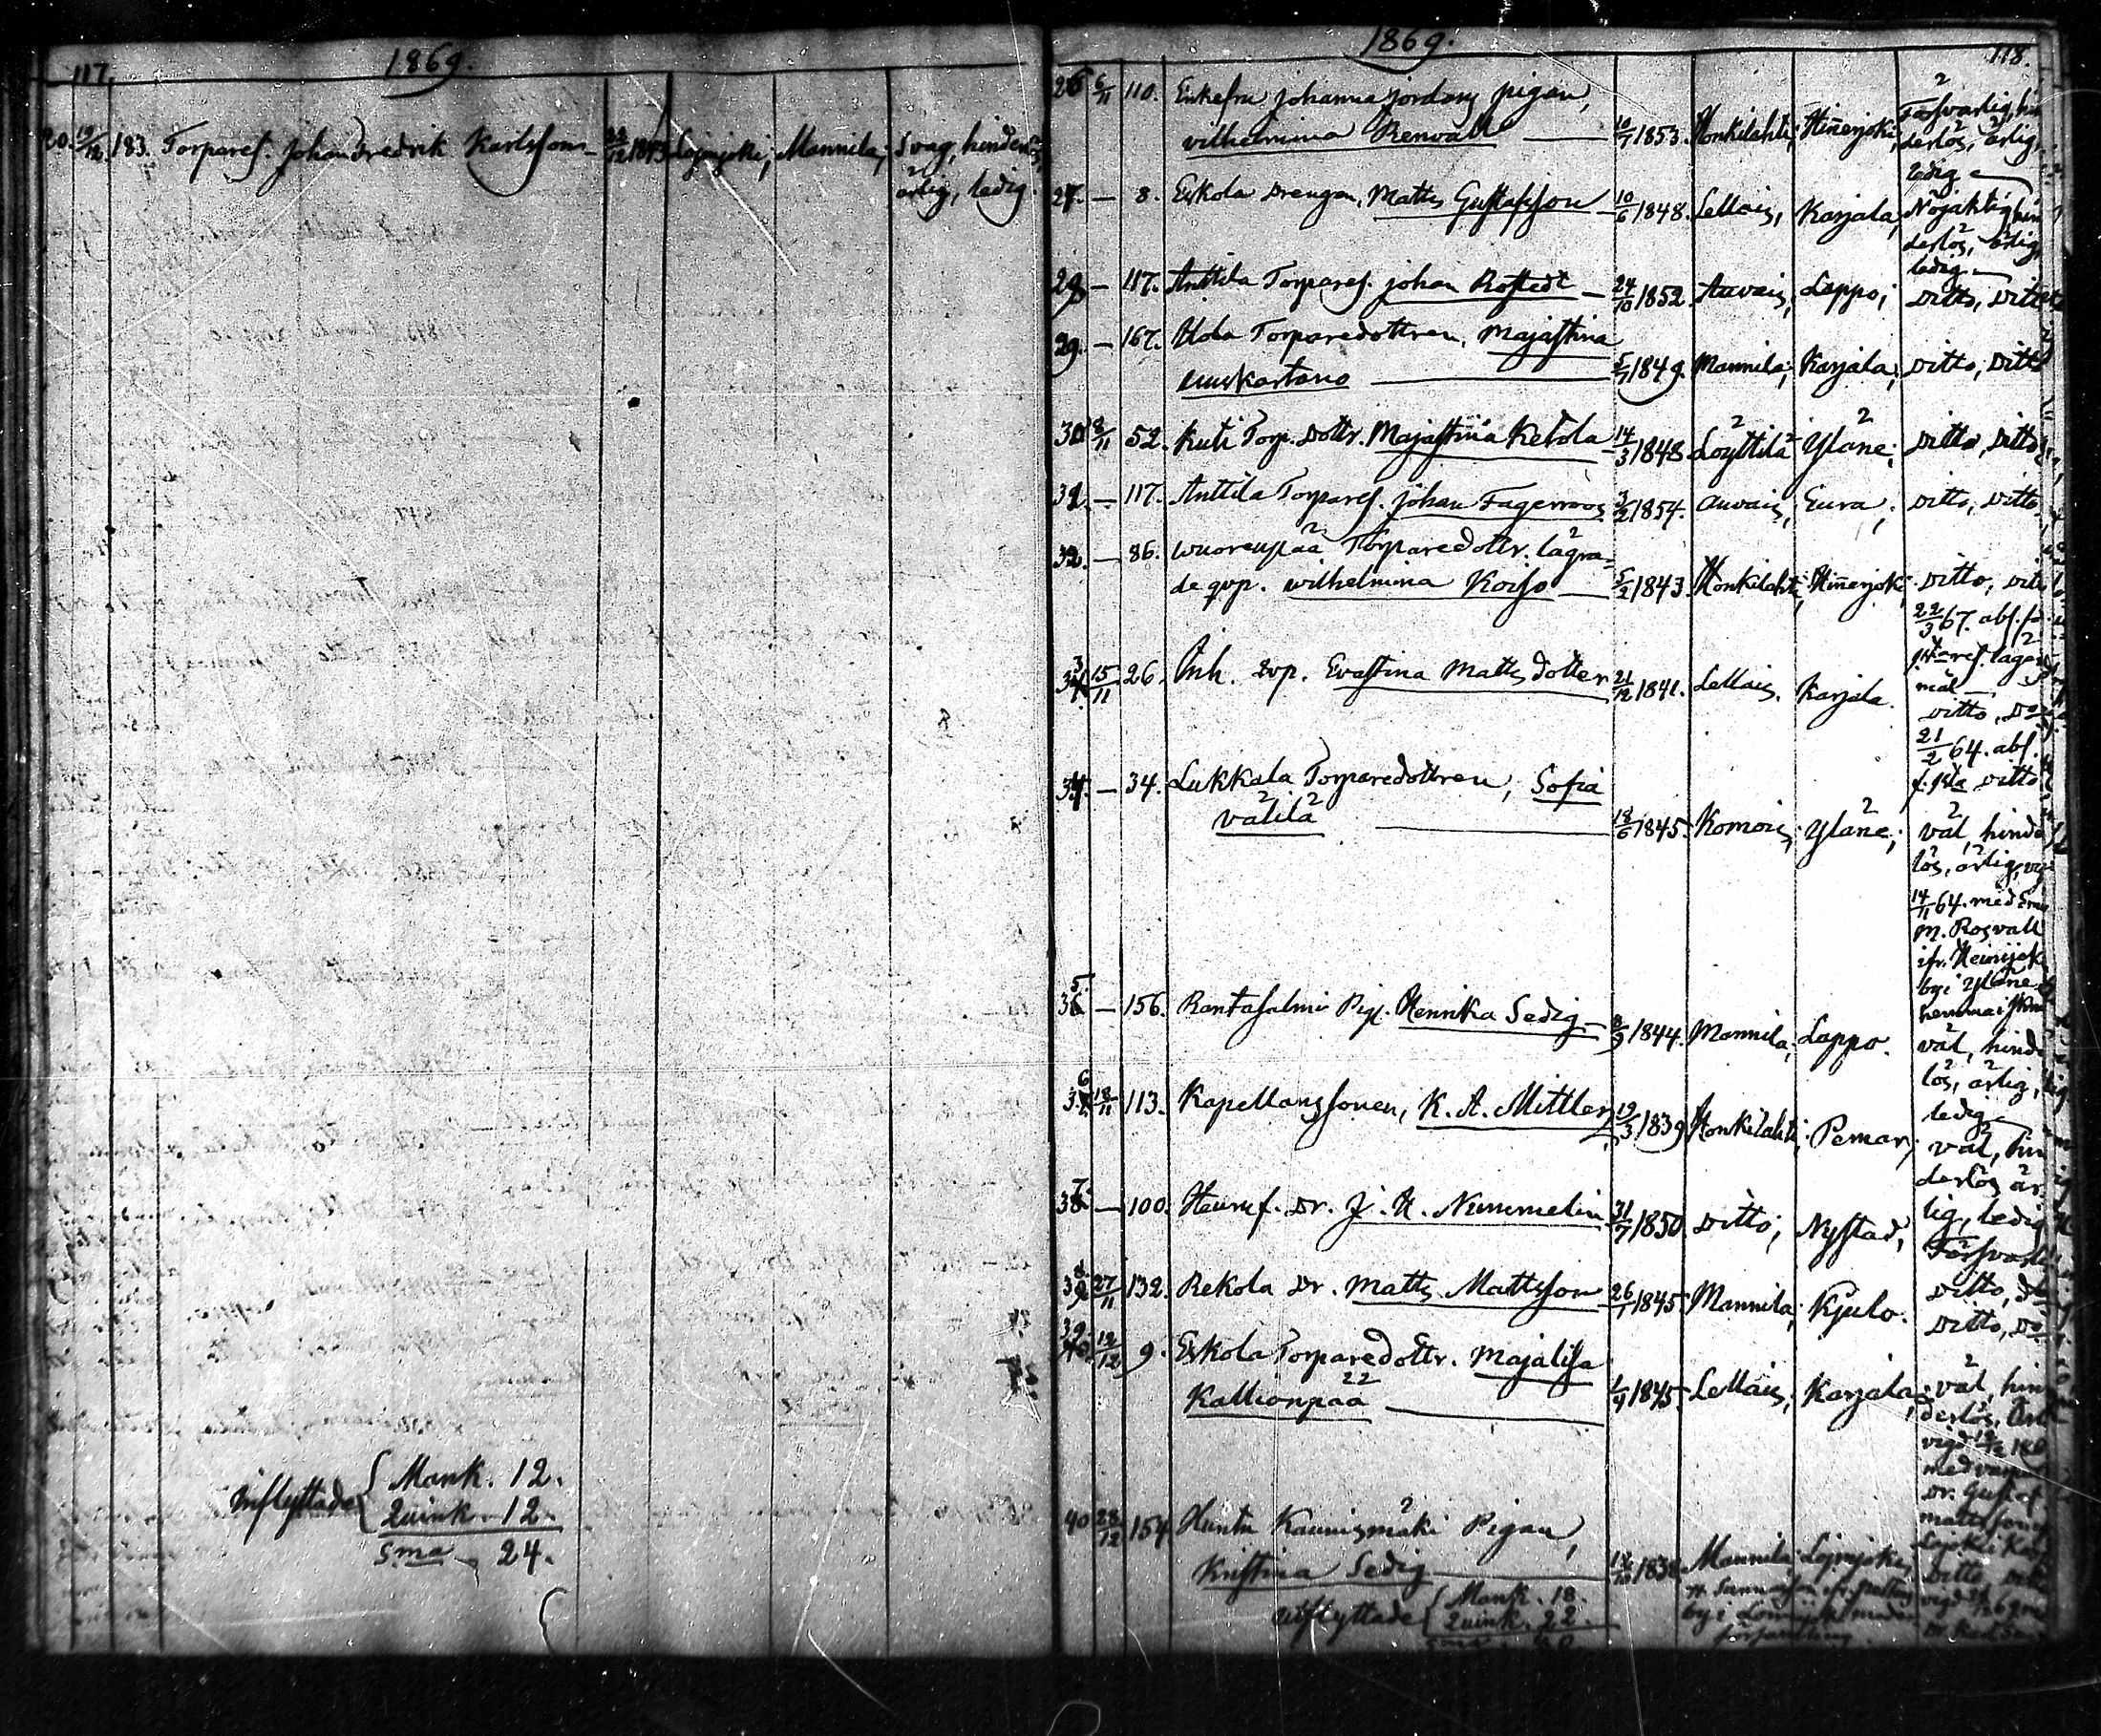 117.
1869.
20. 19/12. 183. Torparef. Johan Fredrik Karlsson 1843 Lojmjoki; Mannila; Svag, hinderlös,
ärlig, ledig.
Inflyttade { Mank. 12.
Quink. 12.
S:ma 24.
1869.
118.
26 6/11 110. Enkefru Johanna Jordans pigan,
Vilhelmina Renvall 10/7 1853. Honkilahti; Hinerjoki; Försvarlig, hin
derlös, ärlig,
ledig
27. — 8. Eskola Drengen, Matts Gustafsson 10/6 1848. Lellais, Karjala, Nöjaktig, hin
derlös, ärlig,
ledig
28 — 117. Anttila Torparef. Johan Rostedt 24/10 1852. Auvais; Lappo; ditto, ditto
29. — 167. Torparedottren, Majastina
Uuskartano 5/7 1849. Mannila; Karjala; ditto, ditto
30 8/11 52. Kuti Torp. dottr. Majastina Ketola 14/3 1848 Löyttilä Yläne; ditto, ditto
31. — 117. Anttila Torparef. Johan Fagerroos 3/2 1854. Auvais, Eura; ditto, ditto,
32. — 86. Wuorenpää Torparedottr. lägra-
de qvp. Wilhelmina Koiso 5/2 1843. Honkilahti; Hinerjoki; ditto,
22/3 67. abs. f.
lägers
mål
33 15/11 26. Inh. qvp. Evastina Mattsdotter 21/12 1841. Lellais. Karjala. ditto, do
21/2 64. abs.
ditto
34. — 34. Lukkala Torparedottren, Sofia
Välilä 18/6 1845. Komois; Yläne; väl, hinder
lös, ärlig,
14/11 64. med
M. Rosvall
ifr. Heinijok
by i Yläne
35. — 156. Rantasalmi Pig. Henrika Sedig 8/9 1844. Mannila; Lappo. väl, hinder
lös, ärlig,
ledig
36 18/11 113. Kapellanssonen, K. A. Mittler 19/3 1839 Honkilahti; Pemar; väl, hin
derlös är
lig, ledig
37. — 100. Dr. J. H. Nummelin 31/7 1850. ditto; Nystad, Försvarl
ditto, do
38 27/11 132. Rekola Dr. Matts Mattsson 26/1 1845. Mannila; Kjulo. ditto, do
39. 12/12 9. Eskola Torparedottr. Majalisa
Kallionpää 1/9 1845. Lellais, Karjala; väl, hin
derlös,
vigd
med
Dr. Gustaf
Mattsson
40 28/12 154 Huntu Kaunismäki Pigan,
Kristina Sedig 1838 Mannila; Lojmjoki; ditto
by i
utflyttade { Mank. 18.
Quink. 22.
S:ma. 40